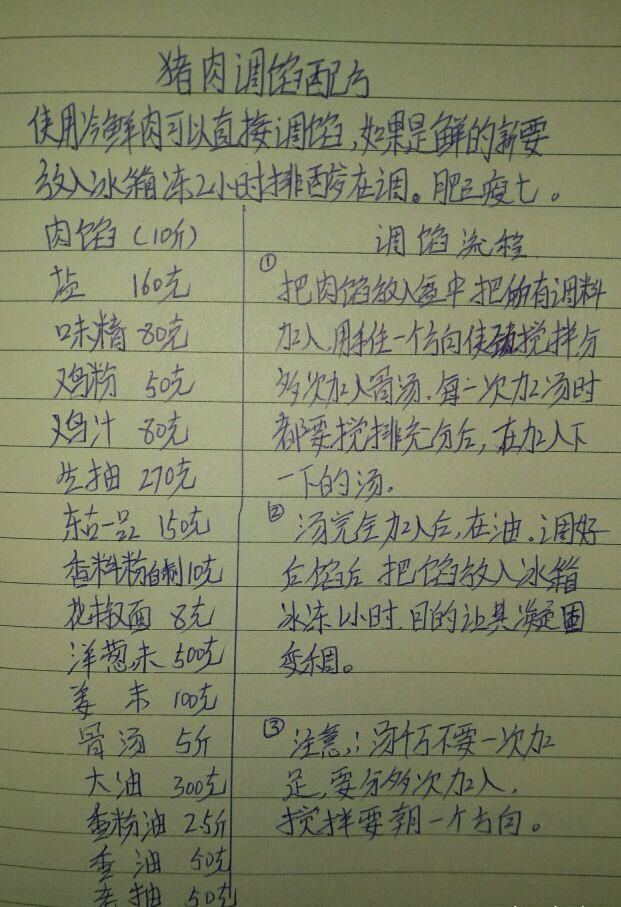 猪肉调馅配方
使用冷鲜肉可以直接调馅,如果是鲜的需要
放入冰箱冻2小时排酸在调。肥三瘦七。
肉馅(10斤)
盐 160克
味精 80克
鸡粉 50克
鸡汁 80克
生抽 270克
东古一品 150克
香料粉自制10克
花椒面 8克
洋葱末 500克
姜末 100克
骨汤 5斤
大油 300克
香粉油 2.5斤
香油 50克
老抽 50克
调馅流程
① 把肉馅放入盆中把所有调料
加入,用手往一个方向使劲搅拌分
多次加入骨汤.每一次加汤时
都要搅排充分后,在加入下
一下的汤.
② 汤完全加入后,在油.调好
后馅后 把馅放入冰箱
冰冻1小时.目的让其凝固
变稠。
③ 注意:汤千万不要一次加
足,要分多次加入,
搅拌要朝一个方向。